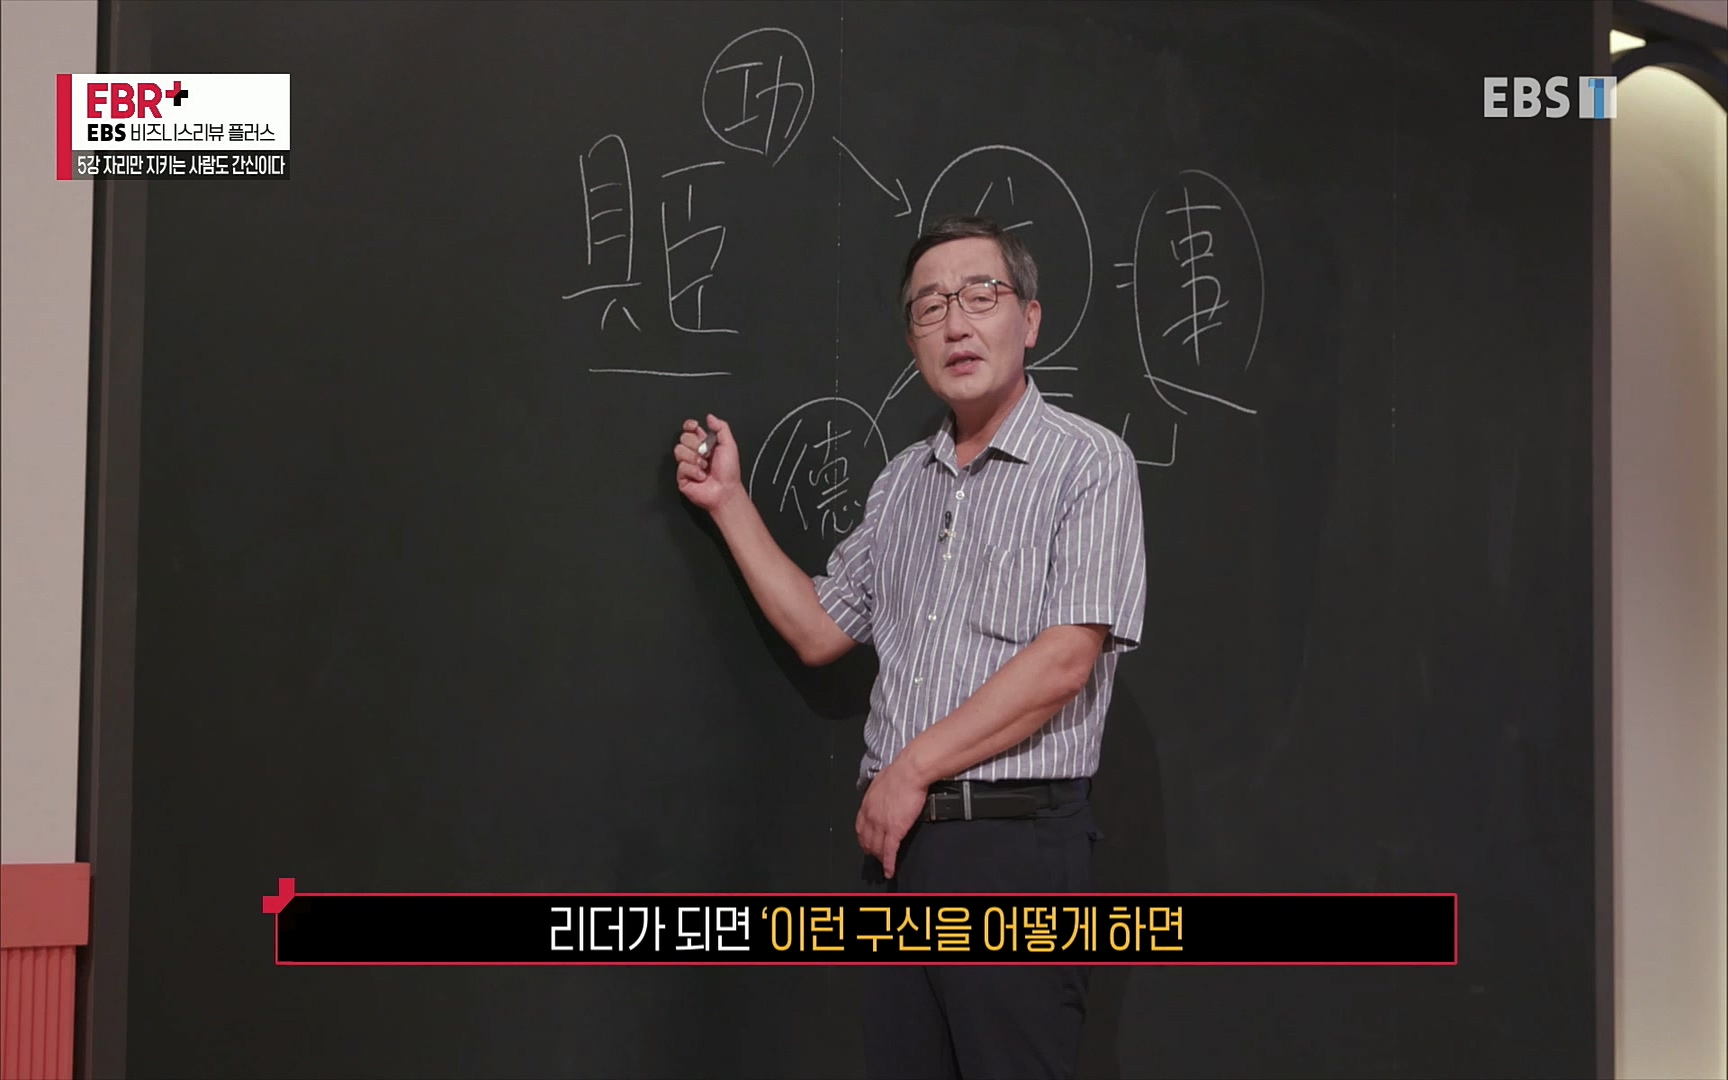 EBR+
EBS 비즈니스리뷰 플러스
5강 자리만 지키는 사람도 간신이다
EBS 1
功
具臣
事
德
리더가 되면 ‘이런 구신을 어떻게 하면